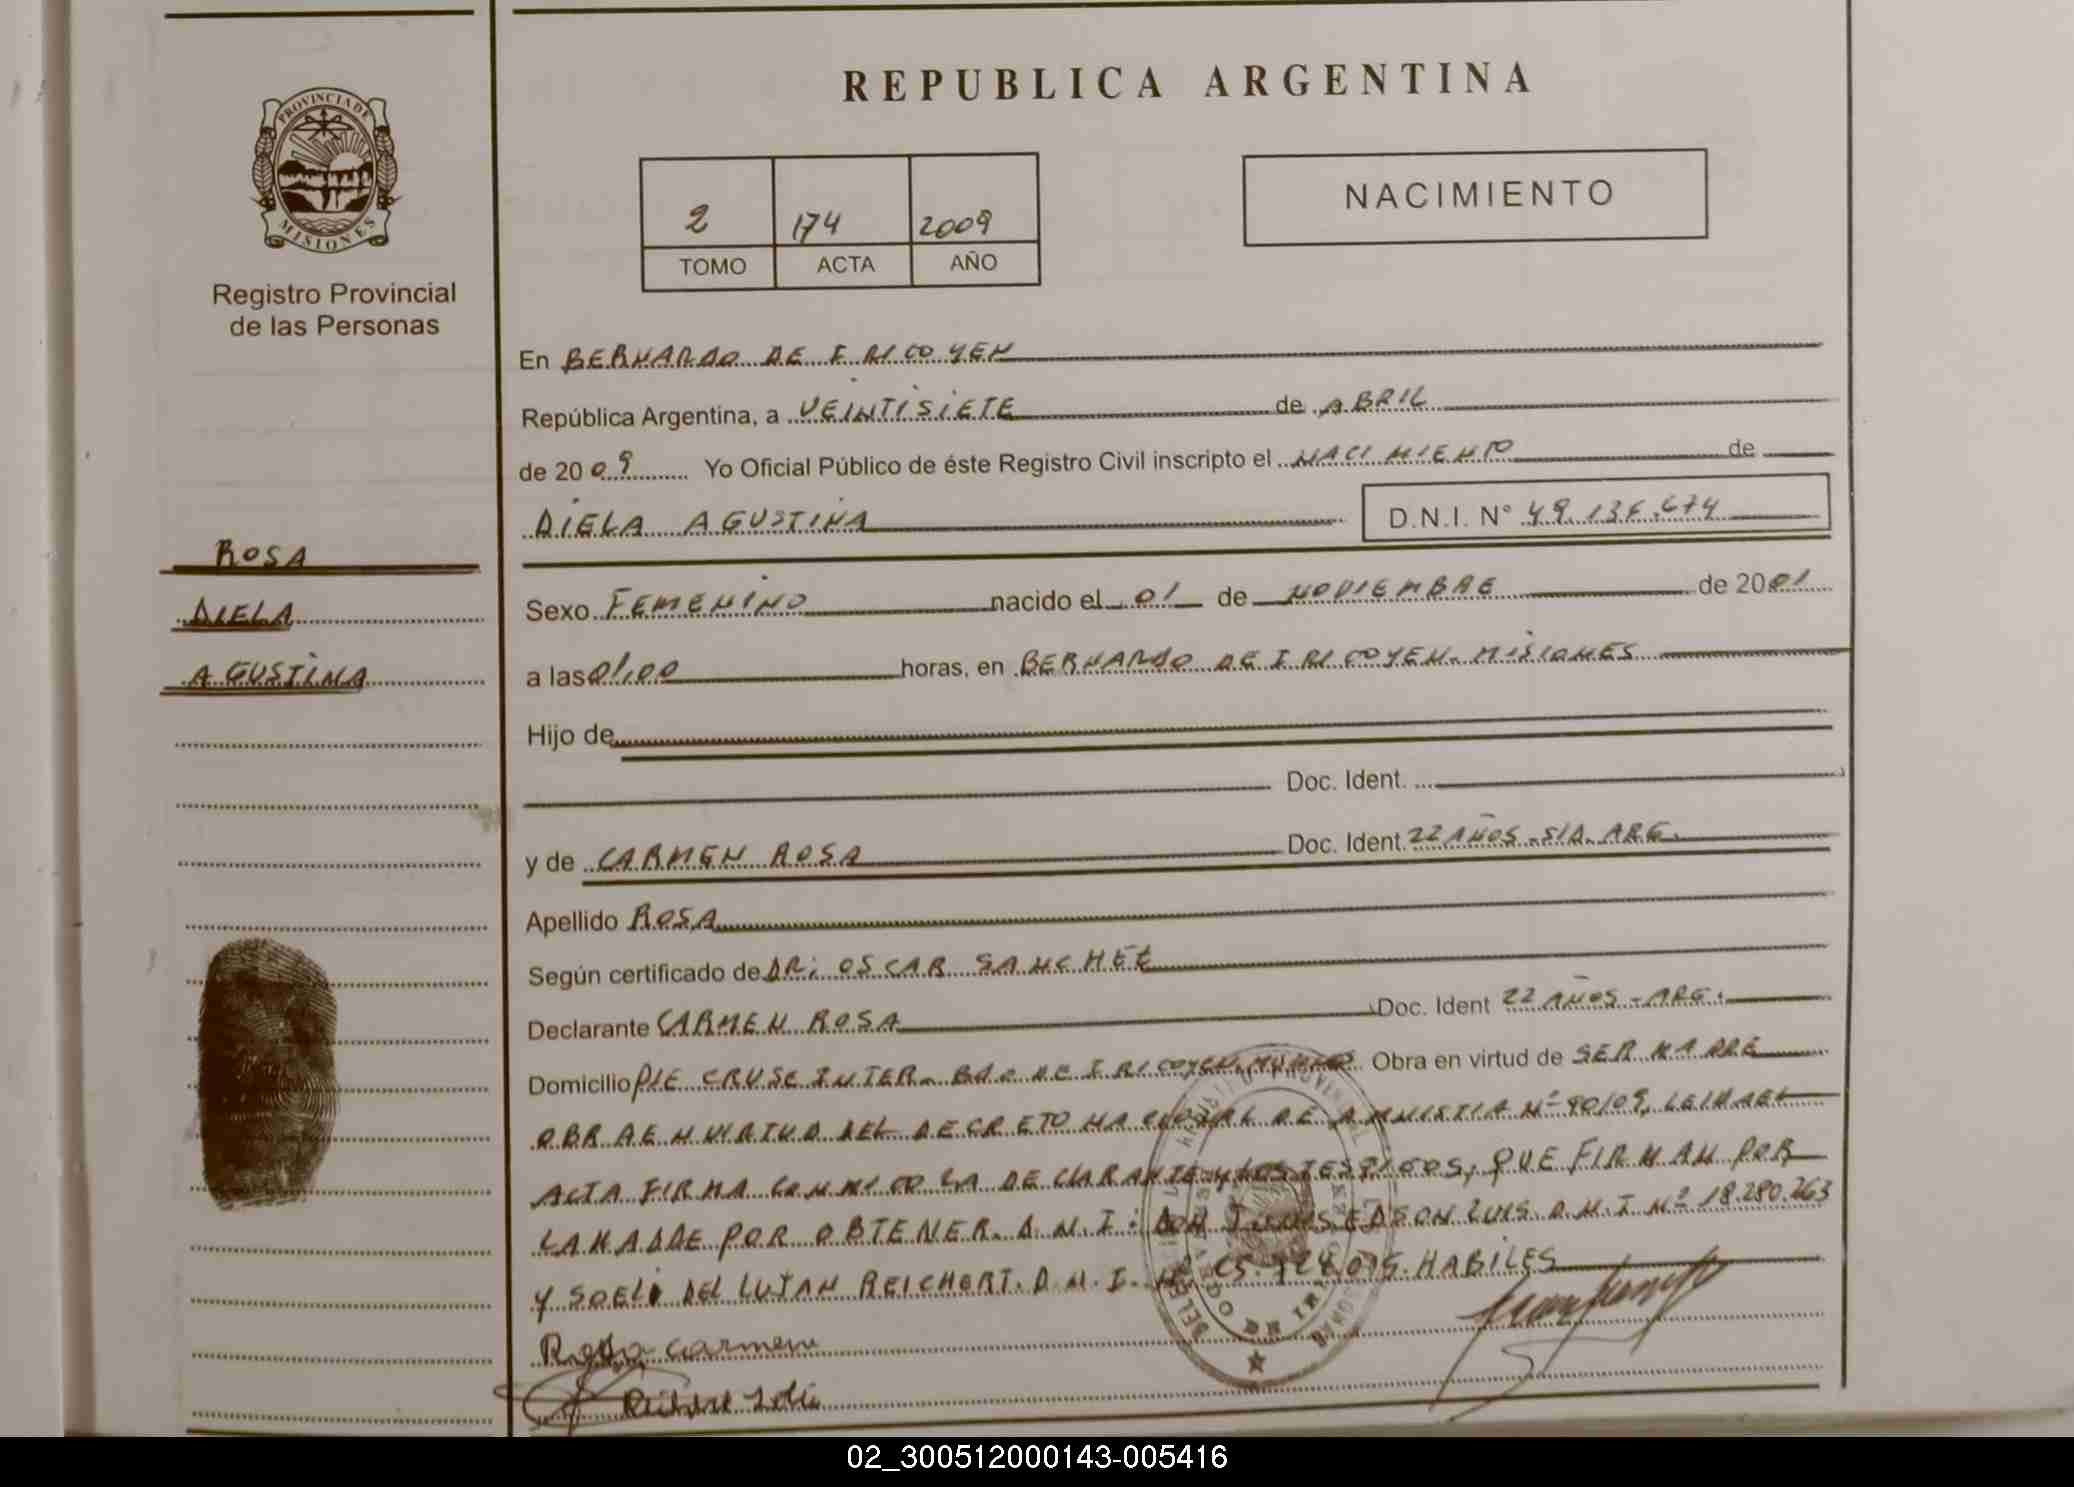 REPUBLICA ARGENTINA
PROVINCIA DE
MISIONES
Registro Provincial
de las Personas
2 174 2009
TOMO ACTA AÑO
NACIMIENTO
En BERNARDO DE IRICOYEN
República Argentina, a VEINTISIETE de ABRIL
de 2009 Yo Oficial Público de éste Registro Civil inscripto el NACIMIENTO de
DIELA AGUSTINA D.N.I. N°
ROSA
DIELA
AGUSTINA
Sexo FEMENINO nacido el 01 de NOVIEMBRE de 2001
a las 01,00 horas, en BERNARDO DE IRICOYEN. MISIONES
Hijo de
Doc. Ident.
y de CARMEN ROSA Doc. Ident. 22 AÑOS - S/D. ARG.
Apellido ROSA
Según certificado de DR: OSCAR SANCHEZ
Declarante CARMEN ROSA Doc. Ident 22 AÑOS - ARG.
Domicilio PJE CRUSE INTER. BDO DE IRICOYEN. Obra en virtud de SER MADRE
OBRA EN VIRTUD DEL DECRETO NACIONAL DE AMNISTIA Nº 90/09, LEIDA EL
ACTA FIRMA CONMIGO LA DECLARANTE Y LOS TESTIGOS, QUE FIRMAN POR
LA MADRE POR OBTENER D.N.I: DON EDSON LUIS D.N.I Nº 18.280.263
Y SOELI DEL LUJAN REICHERT. D.N.I. HABILES
Rosa Carmen
02_300512000143-005416